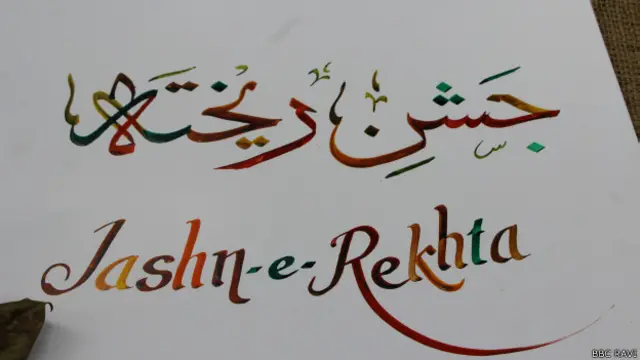 جشنِ ریختہ
Jashn-e-Rekhta
BBC RAVI